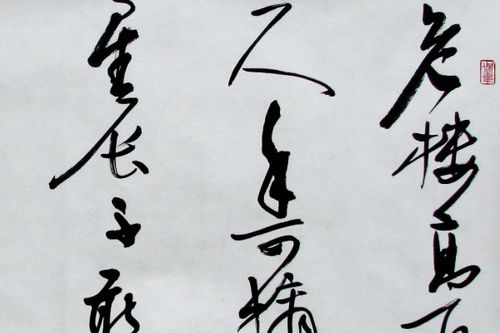 危楼高百
尺手可摘
星辰不敢